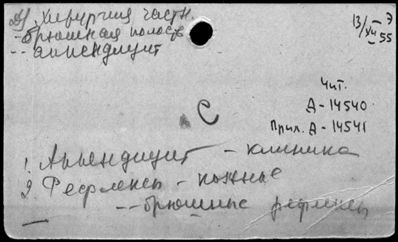 Хирургия частн.
-брюшная полость
-- аппендицит
13/XII 55
Э
С
Чит.
А-14540
Прил. А-14541
1. Аппендицит - клиника
2 Рефлексы - кожные
-- брюшные рефлексы